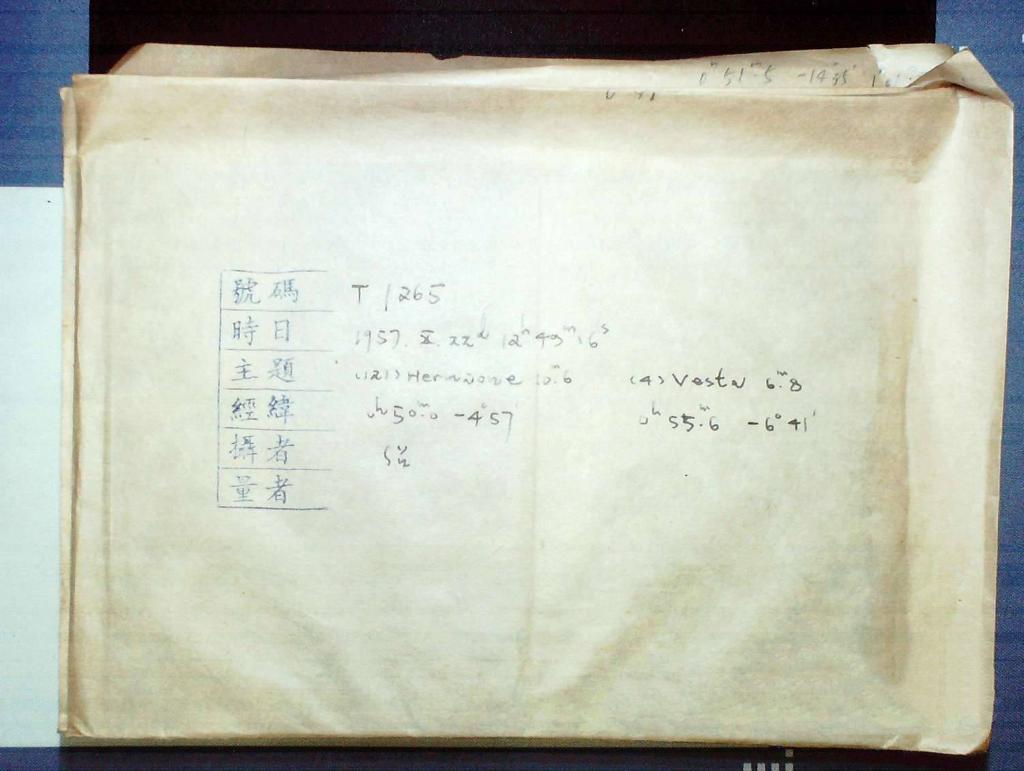 0ʰ 51ᵐ.5 -14°35′
號碼 T 1265
時日 1957. X. 22ᵈ 12ʰ 49ᵐ 16ˢ
主題 (121) Hermione 10ᵐ.6 (4) Vesta 6ᵐ.8
經緯 0ʰ50ᵐ.0 -4°57′ 0ʰ 55ᵐ.6 -6°41′
攝者
量者